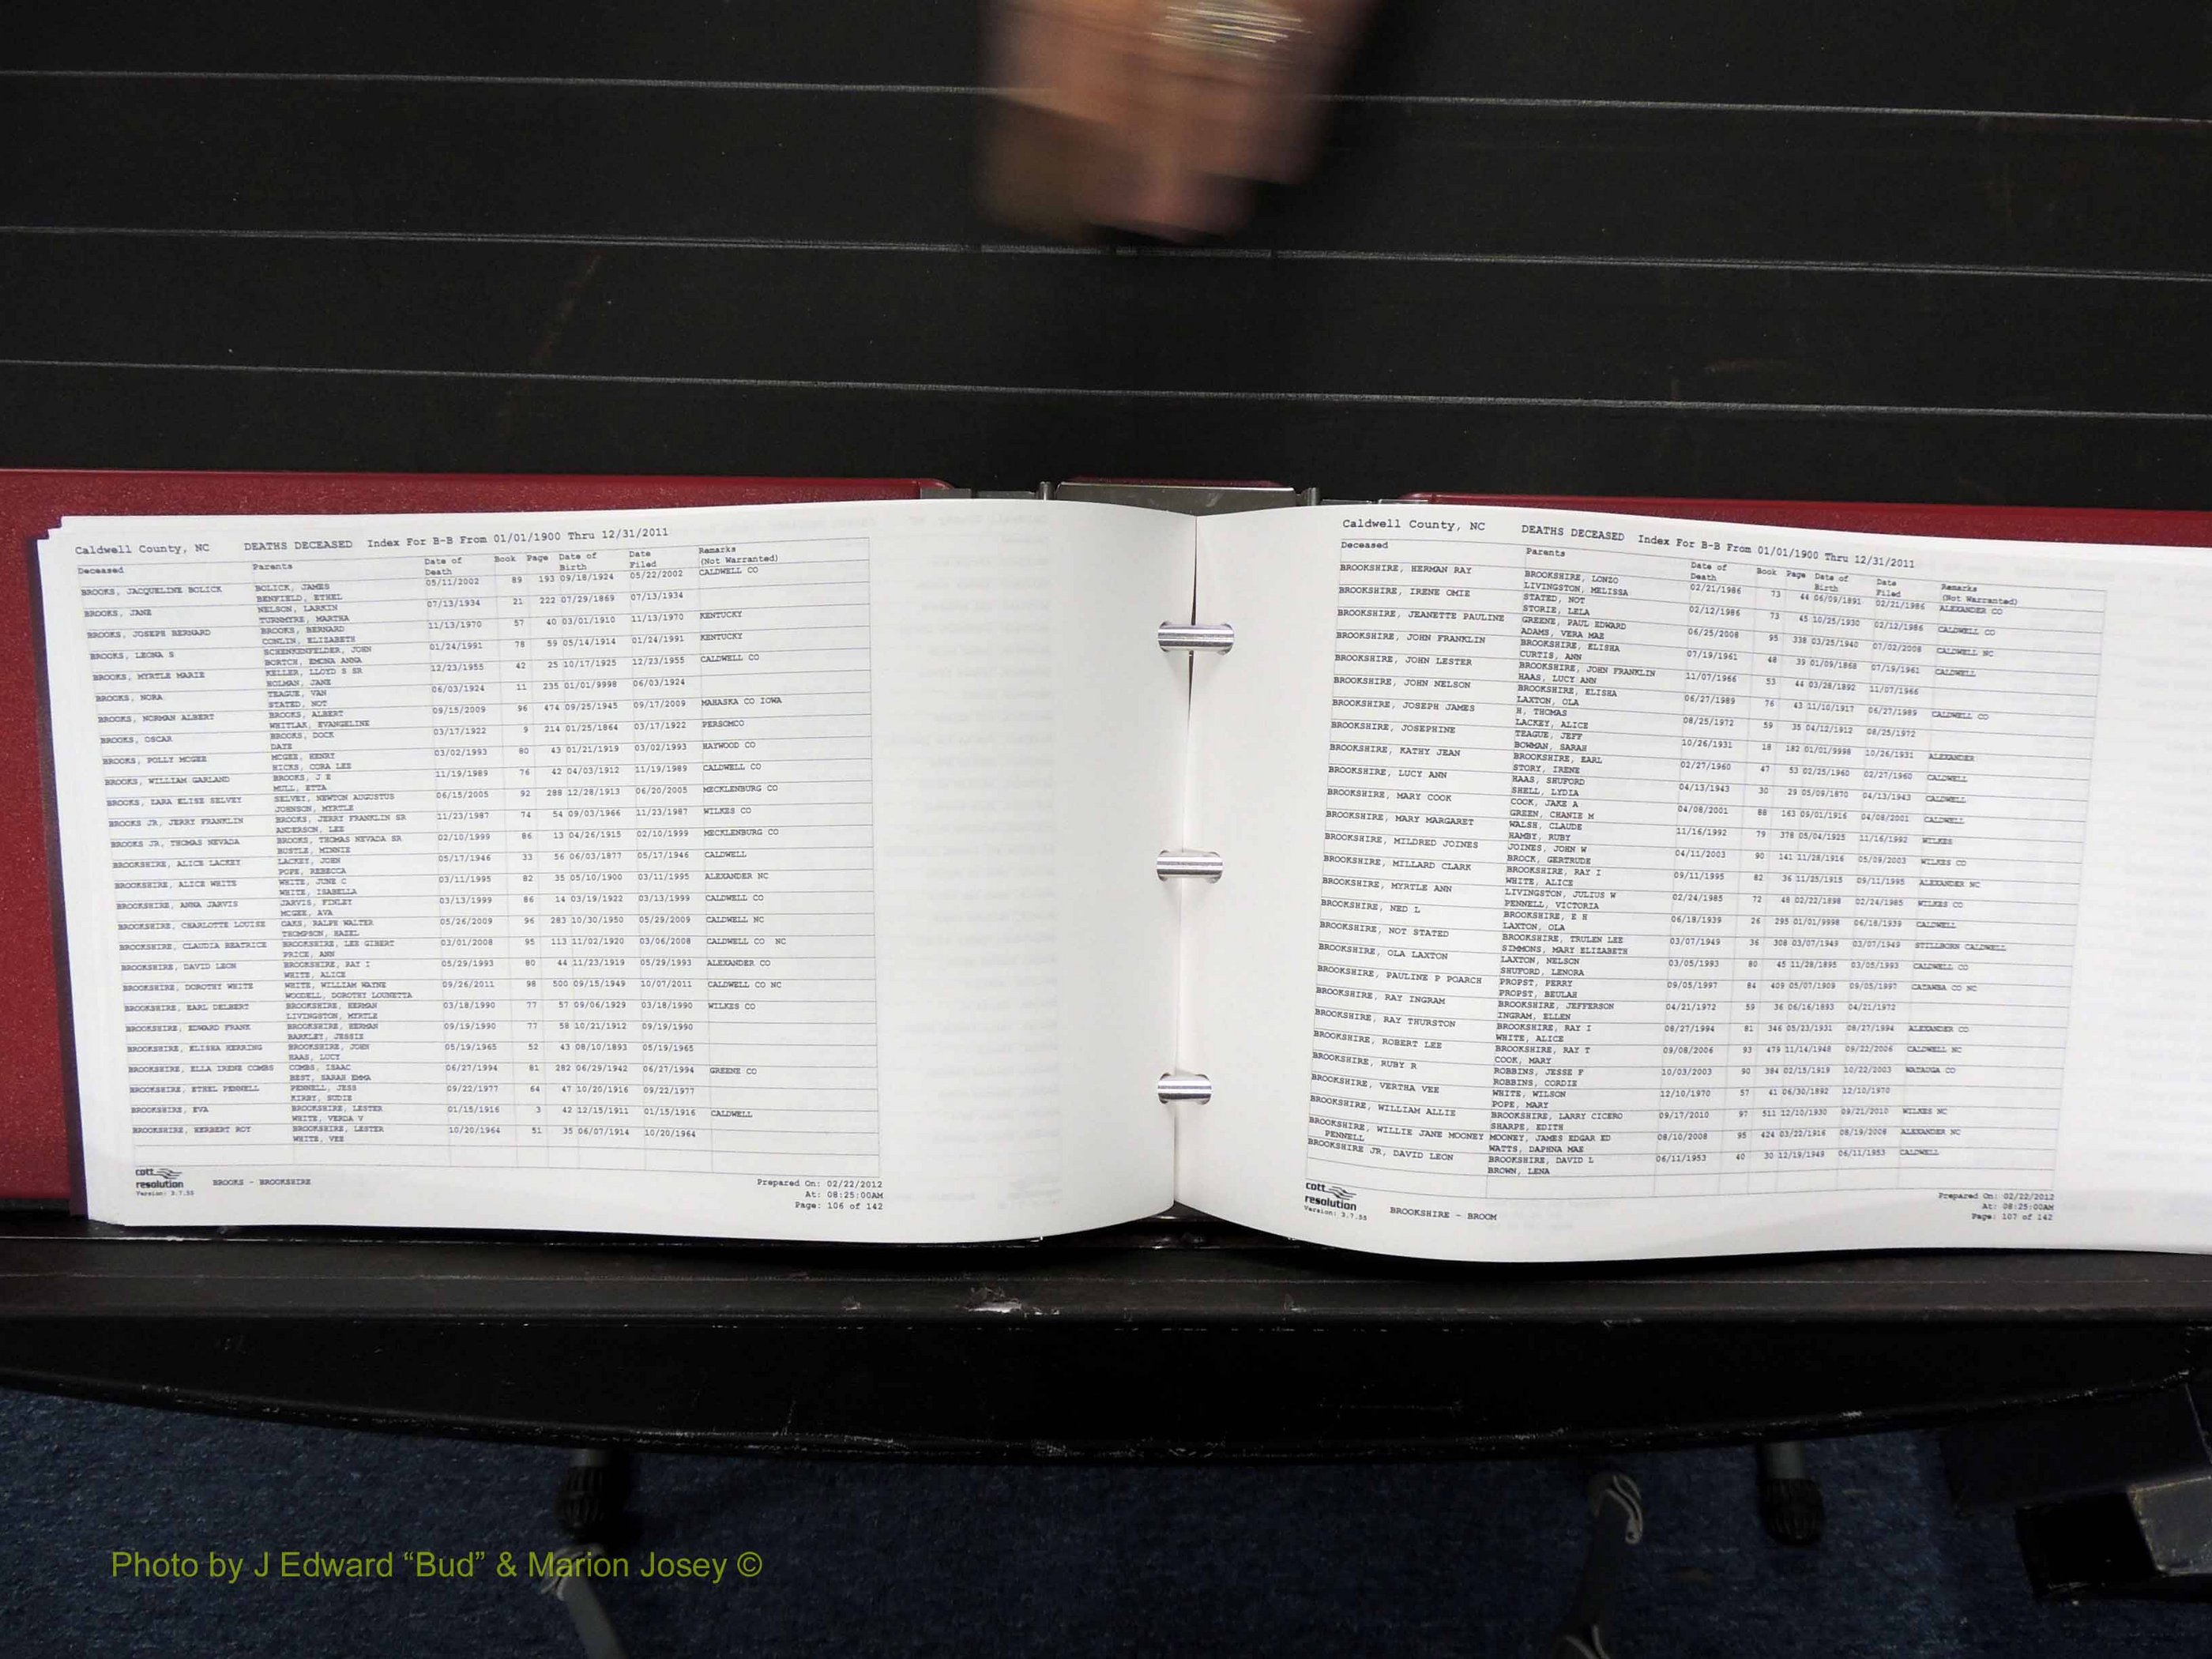 Caldwell County, NC DEATHS DECEASED Index For B-B From 01/01/1900 Thru 12/31/2011
Deceased Parents Date of Death Book Page Date of Birth Date Filed Remarks (Not Warranted)
BROOKS, JACQUELINE BOLICK BOLICK, JAMES 05/11/2002 89 193 09/18/1924 05/22/2002 CALDWELL CO
BENFIELD, ETHEL
BROOKS, JANE NELSON, LARKIN 07/13/1934 21 222 07/29/1869 07/13/1934
TURNMYRE, MARTHA
BROOKS, JOSEPH BERNARD BROOKS, BERNARD 11/13/1970 57 40 03/01/1910 11/13/1970 KENTUCKY
CONLIN, ELIZABETH
BROOKS, LEONA S SCHENKENFELDER, JOHN 01/24/1991 78 59 05/14/1914 01/24/1991 KENTUCKY
BORTCH, EMONA ANNA
BROOKS, MYRTLE MARIE KELLER, LLOYD S SR 12/23/1955 42 25 10/17/1925 12/23/1955 CALDWELL CO
HOLMAN, JANE
BROOKS, NORA TEAGUE, VAN 06/03/1924 11 235 01/01/9998 06/03/1924
STATED, NOT
BROOKS, NORMAN ALBERT BROOKS, ALBERT 09/15/2009 96 474 09/25/1945 09/17/2009 MAHASKA CO IOWA
WHITLAK, EVANGELINE
BROOKS, OSCAR BROOKS, DOCK 03/17/1922 9 214 01/25/1864 03/17/1922 PERSONCO
DAYE
BROOKS, POLLY MCGEE MCGEE, HENRY 03/02/1993 80 43 01/21/1919 03/02/1993 HAYWOOD CO
HICKS, CORA LEE
BROOKS, WILLIAM GARLAND BROOKS, J E 11/19/1989 76 42 04/03/1912 11/19/1989 CALDWELL CO
MULL, ETTA
BROOKS, ZARA ELISE SELVEY SELVEY, NEWTON AUGUSTUS 06/15/2005 92 288 12/28/1913 06/20/2005 MECKLENBURG CO
JOHNSON, MYRTLE
BROOKS JR, JERRY FRANKLIN BROOKS, JERRY FRANKLIN SR 11/23/1987 74 54 09/03/1966 11/23/1987 WILKES CO
ANDERSON, LEE
BROOKS JR, THOMAS NEVADA BROOKS, THOMAS NEVADA SR 02/10/1999 86 13 04/26/1915 02/10/1999 MECKLENBURG CO
HOSTLE, MINNIE
BROOKSHIRE, ALICE LACKEY LACKEY, JOHN 05/17/1946 33 56 06/03/1877 05/17/1946 CALDWELL
POPE, REBECCA
BROOKSHIRE, ALICE WHITE WHITE, JUNE C 03/11/1995 82 35 05/10/1900 03/11/1995 ALEXANDER NC
WHITE, ISABELLA
BROOKSHIRE, ANNA JARVIS JARVIS, FINLEY 03/13/1999 86 14 03/19/1922 03/13/1999 CALDWELL CO
MCGEE, AVA
BROOKSHIRE, CHARLOTTE LOUISE OAKS, RALPH WALTER 05/26/2009 96 283 10/30/1950 05/29/2009 CALDWELL NC
THOMPSON, HAZEL
BROOKSHIRE, CLAUDIA BEATRICE BROOKSHIRE, LEE GIBERT 03/01/2008 95 113 11/02/1920 03/06/2008 CALDWELL CO NC
PRICE, ANN
BROOKSHIRE, DAVID LEON BROOKSHIRE, RAY I 05/29/1993 80 44 11/23/1919 05/29/1993 ALEXANDER CO
WHITE, ALICE
BROOKSHIRE, DOROTHY WHITE WHITE, WILLIAM WAYNE 09/26/2011 98 500 09/15/1949 10/07/2011 CALDWELL CO NC
WOODELL, DOROTHY LOUNETTA
BROOKSHIRE, EARL DELBERT BROOKSHIRE, HERMAN 03/18/1990 77 57 09/06/1929 03/18/1990 WILKES CO
LIVINGSTON, MYRTLE
BROOKSHIRE, EDWARD FRANK BROOKSHIRE, HERMAN 09/19/1990 77 58 10/21/1912 09/19/1990
BARKLEY, JESSIE
BROOKSHIRE, ELISHA HERRING BROOKSHIRE, JOHN 05/19/1965 52 43 08/10/1893 05/19/1965
HAAS, LUCY
BROOKSHIRE, ELLA IRENE COMBS COMBS, ISAAC 06/27/1994 81 282 06/29/1942 06/27/1994 GREENE CO
BEST, SARAH EMMA
BROOKSHIRE, ETHEL PENNELL PENNELL, JESS 09/22/1977 64 47 10/20/1916 09/22/1977
KIRBY, SUDIE
BROOKSHIRE, EVA BROOKSHIRE, LESTER 01/15/1916 3 42 12/15/1911 01/15/1916 CALDWELL
WHITE, VERDA V
BROOKSHIRE, HERBERT ROY BROOKSHIRE, LESTER 10/20/1964 51 35 06/07/1914 10/20/1964
WHITE, VEE
cott
resolution
Version: 3.7.55
BROOKS - BROOKSHIRE
Prepared On: 02/22/2012
At: 08:25:00AM
Page: 106 of 142
Caldwell County, NC DEATHS DECEASED Index For B-B From 01/01/1900 Thru 12/31/2011
Deceased Parents Date of Death Book Page Date of Birth Date Filed Remarks (Not Warranted)
BROOKSHIRE, HERMAN RAY BROOKSHIRE, LONZO 02/21/1986 73 44 06/09/1891 02/21/1986 ALEXANDER CO
LIVINGSTON, MELISSA
BROOKSHIRE, IRENE OMIE STATED, NOT 02/12/1986 73 45 10/25/1930 02/12/1986 CALDWELL CO
STORIE, LELA
BROOKSHIRE, JEANETTE PAULINE GREENE, PAUL EDWARD 06/25/2008 95 338 03/25/1940 07/02/2008 CALDWELL NC
ADAMS, VERA MAE
BROOKSHIRE, JOHN FRANKLIN BROOKSHIRE, ELISHA 07/19/1961 48 39 01/09/1868 07/19/1961 CALDWELL
CURTIS, ANN
BROOKSHIRE, JOHN LESTER BROOKSHIRE, JOHN FRANKLIN 11/07/1966 53 44 03/28/1892 11/07/1966
HAAS, LUCY ANN
BROOKSHIRE, JOHN NELSON BROOKSHIRE, ELISHA 06/27/1989 76 43 11/10/1917 06/27/1989 CALDWELL CO
LAXTON, OLA
BROOKSHIRE, JOSEPH JAMES H, THOMAS 08/25/1972 59 35 04/12/1912 08/25/1972
LACKEY, ALICE
BROOKSHIRE, JOSEPHINE TEAGUE, JEFF 10/26/1931 18 182 01/01/9998 10/26/1931 ALEXANDER
BOWMAN, SARAH
BROOKSHIRE, KATHY JEAN BROOKSHIRE, EARL 02/27/1960 47 53 02/25/1960 02/27/1960 CALDWELL
STORY, IRENE
BROOKSHIRE, LUCY ANN HAAS, SHUFORD 04/13/1943 30 29 05/09/1870 04/13/1943 CALDWELL
SHELL, LYDIA
BROOKSHIRE, MARY COOK COOK, JAKE A 04/08/2001 88 163 09/01/1916 04/08/2001 CALDWELL
GREEN, CHANIE M
BROOKSHIRE, MARY MARGARET WALSH, CLAUDE 11/16/1992 79 378 05/04/1925 11/16/1992 WILKES
HAMBY, RUBY
BROOKSHIRE, MILDRED JOINES JOINES, JOHN W 04/11/2003 90 141 11/28/1916 05/09/2003 WILKES CO
BROCK, GERTRUDE
BROOKSHIRE, MILLARD CLARK BROOKSHIRE, RAY I 09/11/1995 82 36 11/25/1915 09/11/1995 ALEXANDER NC
WHITE, ALICE
BROOKSHIRE, MYRTLE ANN LIVINGSTON, JULIUS W 02/24/1985 72 48 02/22/1898 02/24/1985 WILKES CO
PENNELL, VICTORIA
BROOKSHIRE, NED L BROOKSHIRE, E H 06/18/1939 26 295 01/01/9998 06/18/1939 CALDWELL
LAXTON, OLA
BROOKSHIRE, NOT STATED BROOKSHIRE, TRULEN LEE 03/07/1949 36 308 03/07/1949 03/07/1949 STILLBORN CALDWELL
SIMMONS, MARY ELIZABETH
BROOKSHIRE, OLA LAXTON LAXTON, NELSON 03/05/1993 80 45 11/28/1895 03/05/1993 CALDWELL CO
SHUFORD, LENORA
BROOKSHIRE, PAULINE P POARCH PROPST, PERRY 09/05/1997 84 409 05/07/1909 09/05/1997 CATAWBA CO NC
PROPST, BEULAH
BROOKSHIRE, RAY INGRAM BROOKSHIRE, JEFFERSON 04/21/1972 59 36 06/16/1893 04/21/1972
INGRAM, ELLEN
BROOKSHIRE, RAY THURSTON BROOKSHIRE, RAY I 08/27/1994 81 346 05/23/1931 08/27/1994 ALEXANDER CO
WHITE, ALICE
BROOKSHIRE, ROBERT LEE BROOKSHIRE, RAY T 09/08/2006 93 479 11/14/1948 09/22/2006 CALDWELL NC
COOK, MARY
BROOKSHIRE, RUBY R ROBBINS, JESSE F 10/03/2003 90 384 02/15/1919 10/22/2003 WATAUGA CO
ROBBINS, CORDIE
BROOKSHIRE, VERTHA VEE WHITE, WILSON 12/10/1970 57 41 06/30/1892 12/10/1970
POPE, MARY
BROOKSHIRE, WILLIAM ALLIE BROOKSHIRE, LARRY CICERO 09/17/2010 97 511 12/10/1930 09/21/2010 WILKES NC
SHARPE, EDITH
BROOKSHIRE, WILLIE JANE MOONEY MOONEY, JAMES EDGAR ED 08/10/2008 95 424 03/22/1916 08/19/2008 ALEXANDER NC
PENNELL WATTS, DAPHNA MAE
BROOKSHIRE JR, DAVID LEON BROOKSHIRE, DAVID L 06/11/1953 40 30 12/19/1949 06/11/1953 CALDWELL
BROWN, LENA
cott
resolution
Version: 3.7.55
BROOKSHIRE - BROOM
Prepared On: 02/22/2012
At: 08:25:00AM
Page: 107 of 142
Photo by J Edward “Bud” & Marion Josey ©